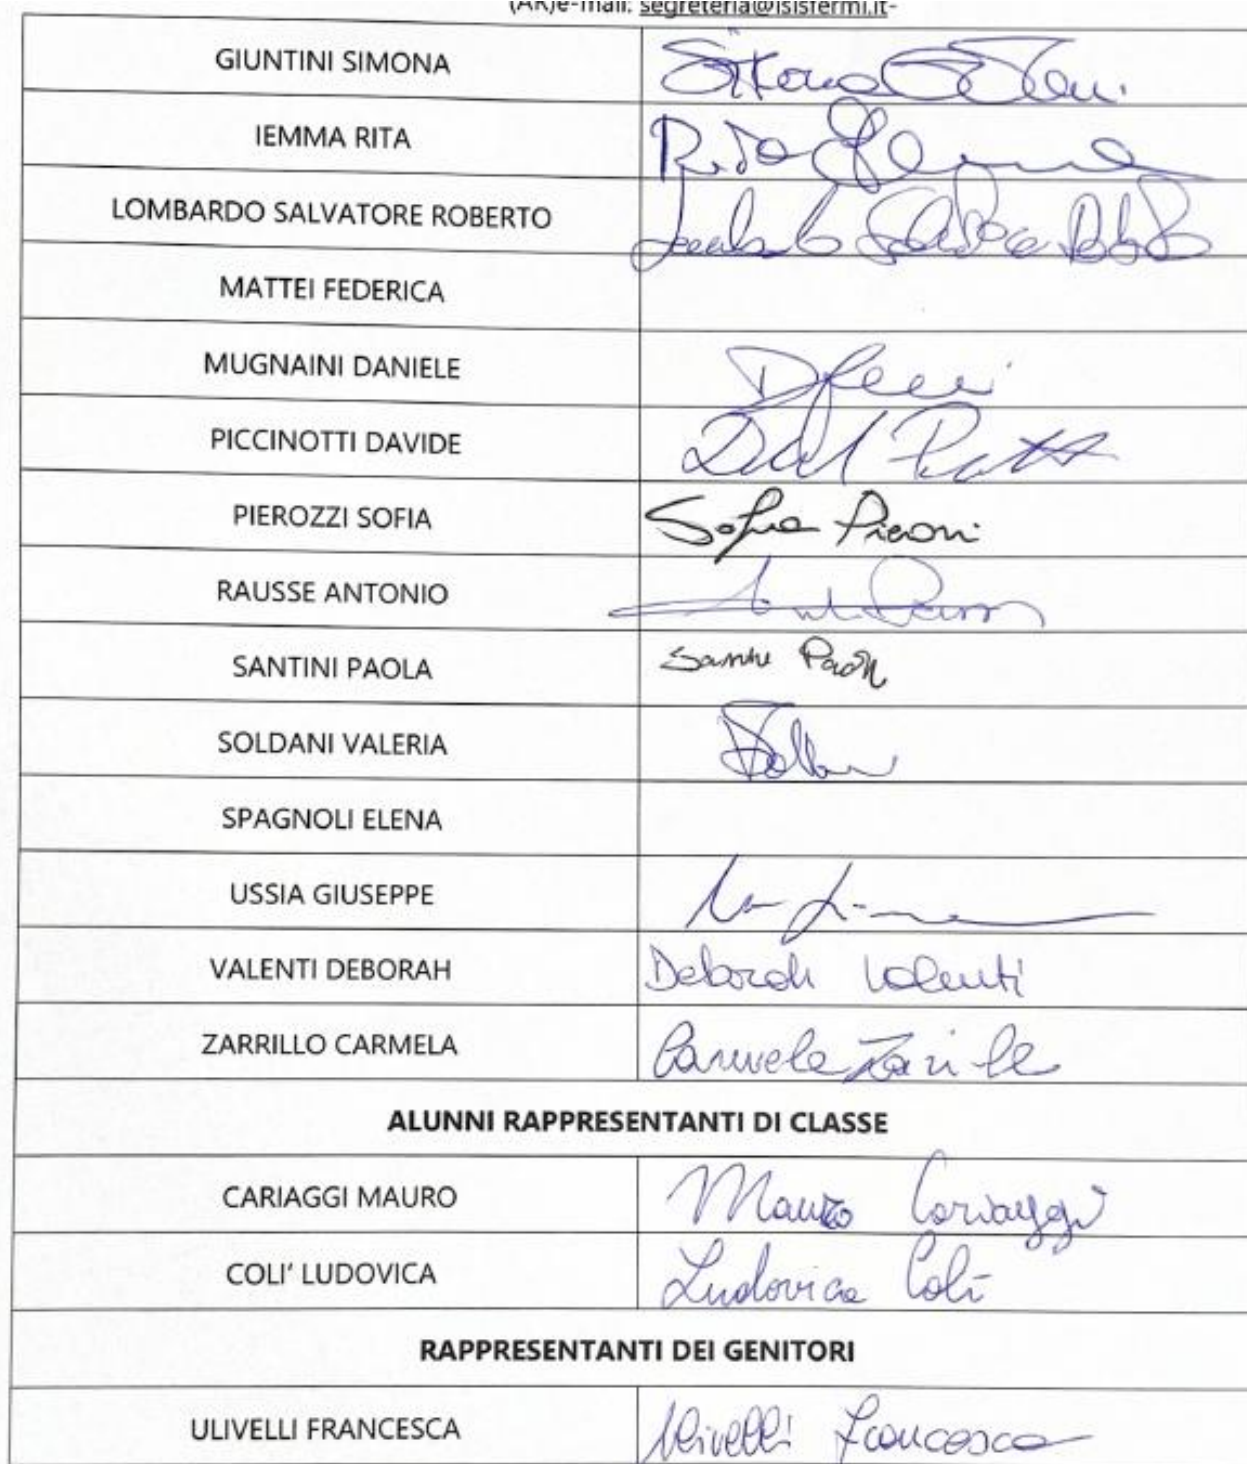 (AR)e-mail: segreteria@isisfermi.it-
GIUNTINI SIMONA
IEMMA RITA Rita Iemma
LOMBARDO SALVATORE ROBERTO Lombardo Salvatore Roberto
MATTEI FEDERICA
MUGNAINI DANIELE
PICCINOTTI DAVIDE
PIEROZZI SOFIA Sofia
RAUSSE ANTONIO
SANTINI PAOLA Santini Paola
SOLDANI VALERIA
SPAGNOLI ELENA
USSIA GIUSEPPE
VALENTI DEBORAH Deborah Valenti
ZARRILLO CARMELA Carmela Zarrillo
ALUNNI RAPPRESENTANTI DI CLASSE
CARIAGGI MAURO Mauro Cariaggi
COLI' LUDOVICA Ludovica Colì
RAPPRESENTANTI DEI GENITORI
ULIVELLI FRANCESCA Ulivelli Francesca